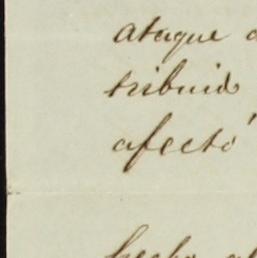 ataque
tribuido
afectó
hecho